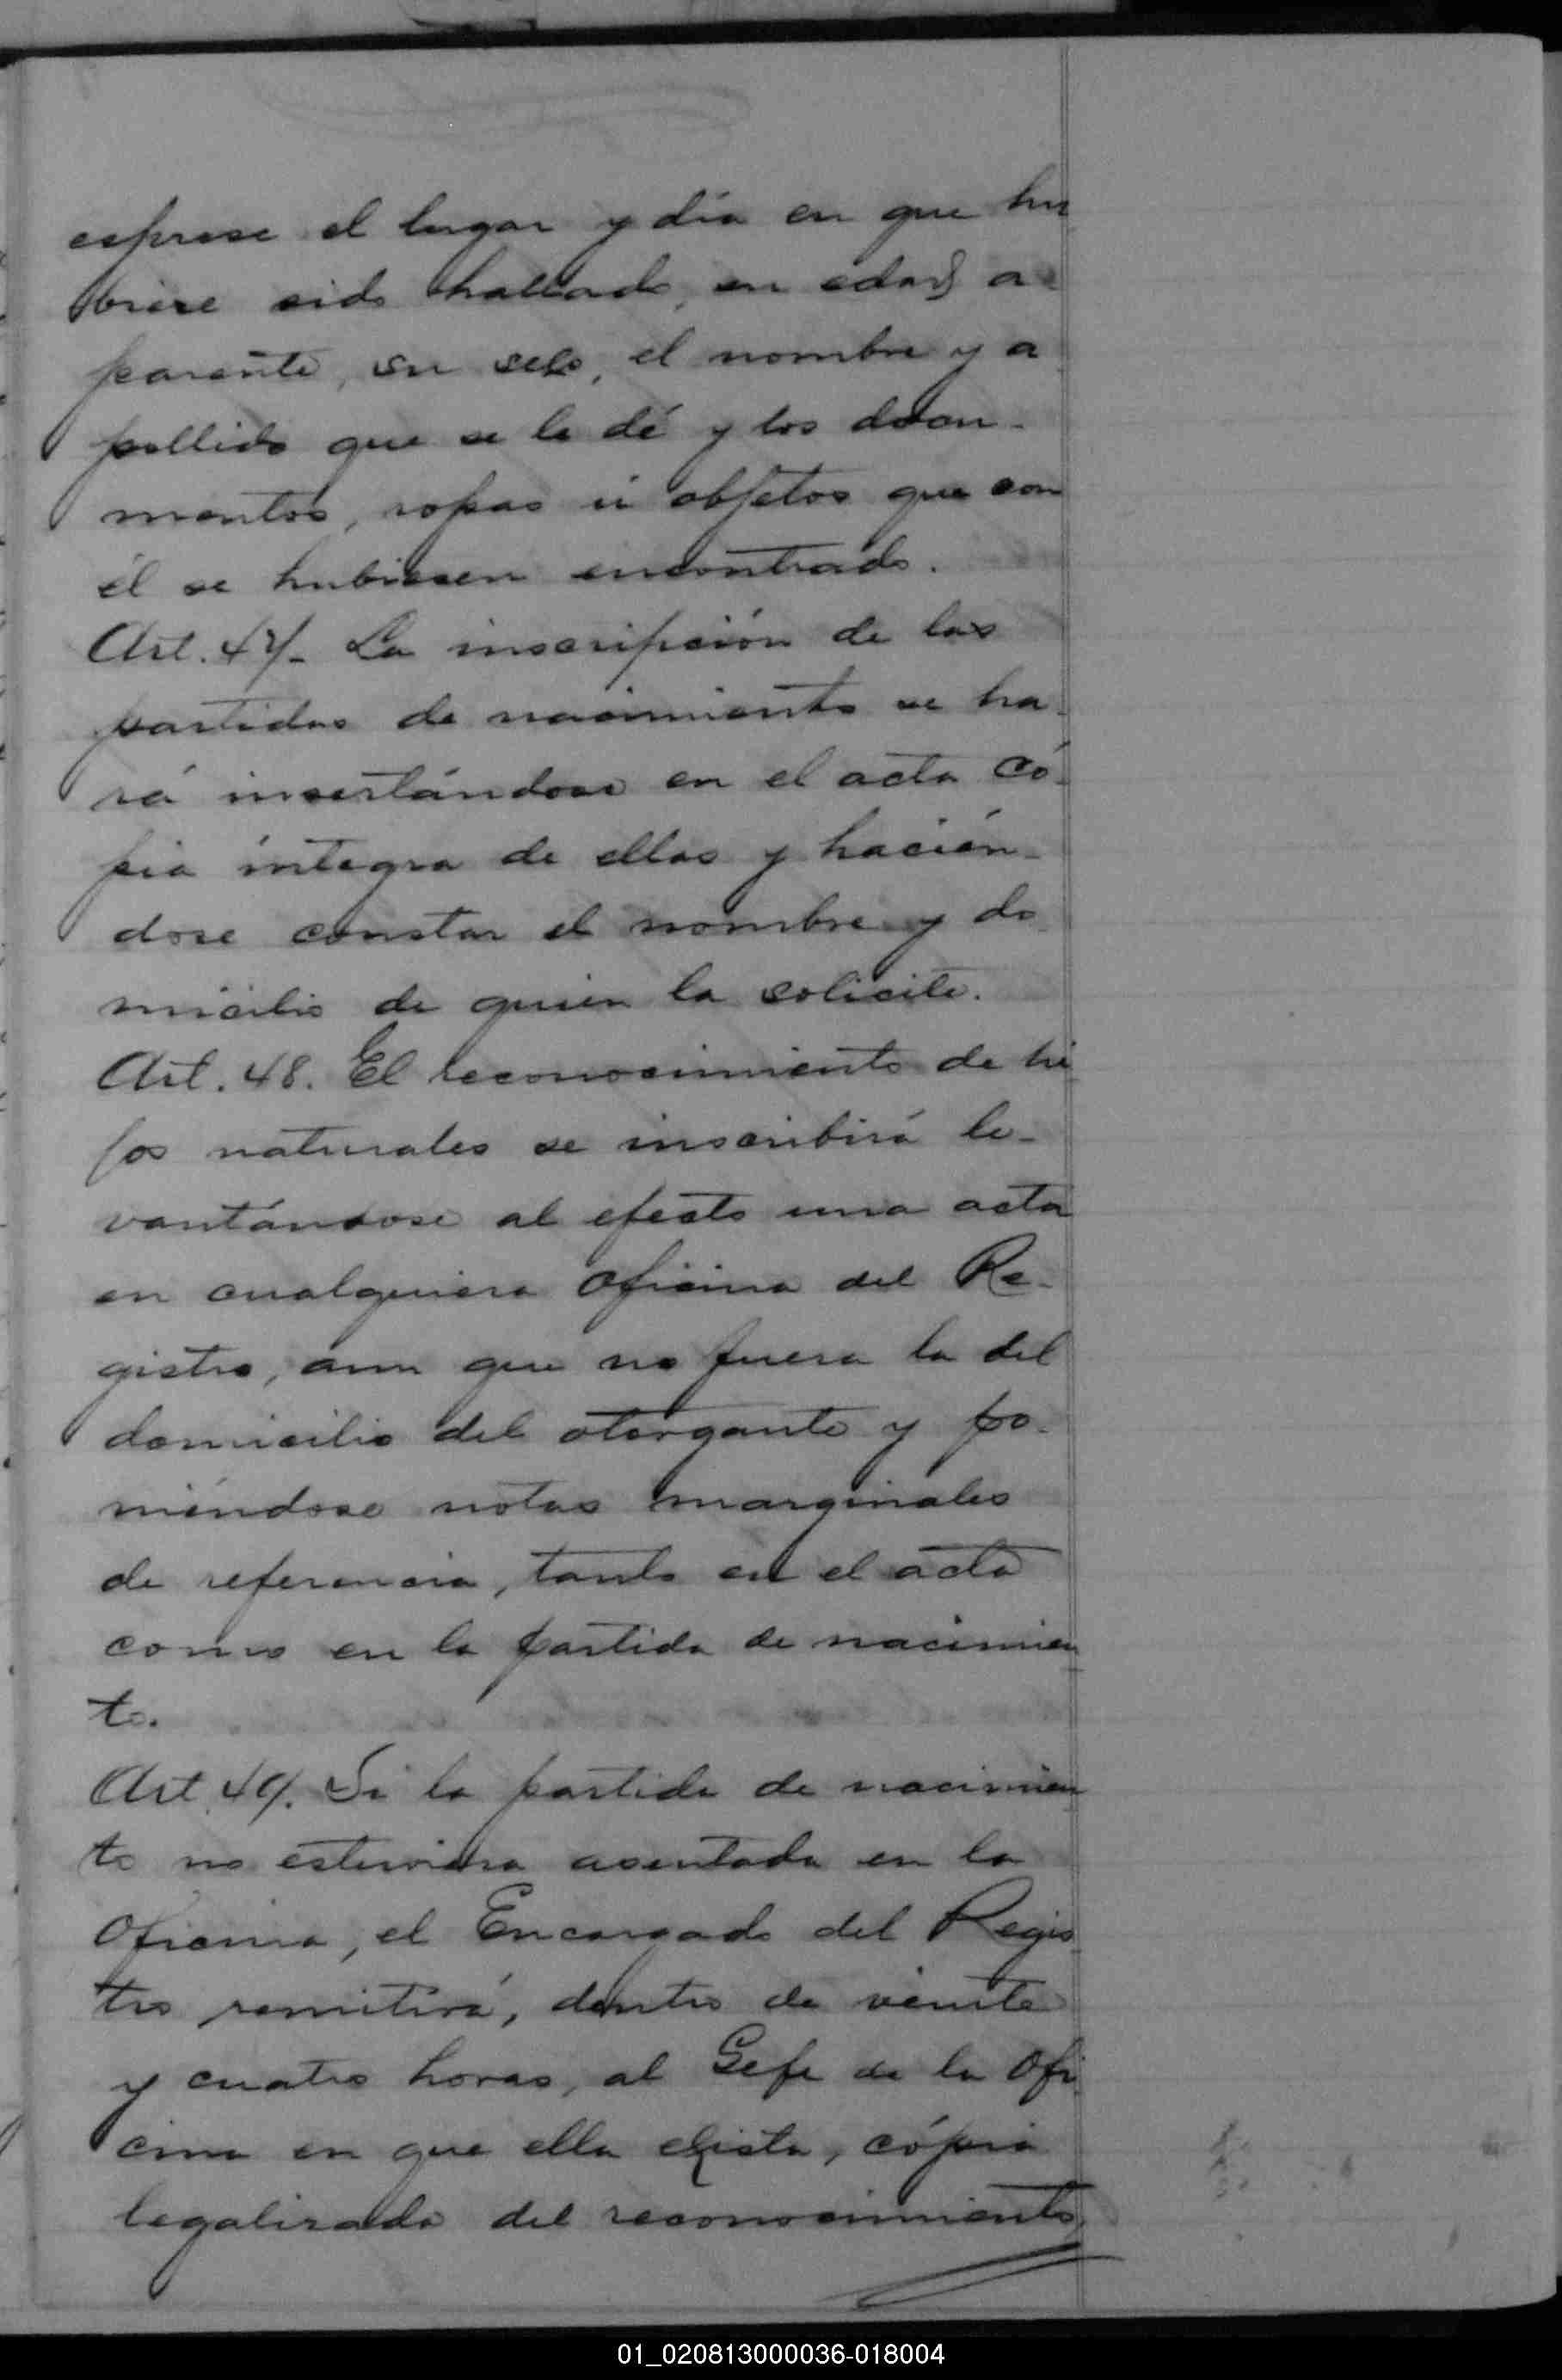 esprese el lugar y día en que hu
biere sido hallado, su edad a
parente, su sexo, el nombre y a
pellido que se le dé y los docu-
mentos, ropas ú objetos que con
él se hubiesen encontrado.
Art. 47.- La inscripción de las
partidas de nacimiento se ha-
rá insertándose en el acta có-
pia íntegra de ellas y hacién-
dose constar el nombre y do
micilio de quien la solicite.
Art. 48. El reconocimiento de hi
jos naturales se inscribirá le-
vantándose al efecto una acta
en cualquiera Oficina del Re-
gistro, aun que no fuera la del
domicilio del otorgante y po-
niéndose notas marginales
de referencia, tanto en el acta
como en la partida de nacimien
to.
Art. 49. Si la partida de nacimien
to no estuviera asentada en la
Oficina, el Encargado del Regis
tro remitirá, dentro de veinte
y cuatro horas, al Gefe de la Ofi
cina en que ella exista, cópia
legalizada del reconocimiento,
01_020813000036-018004